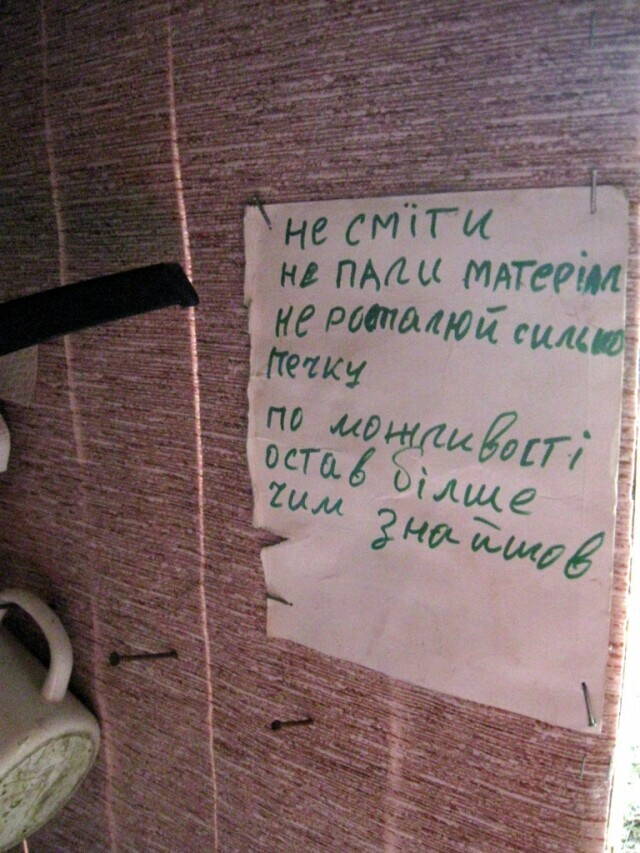 не сміти
не пали матеріал
не росталюй сильно
печку
по можливості
остав білше
чим знайшов